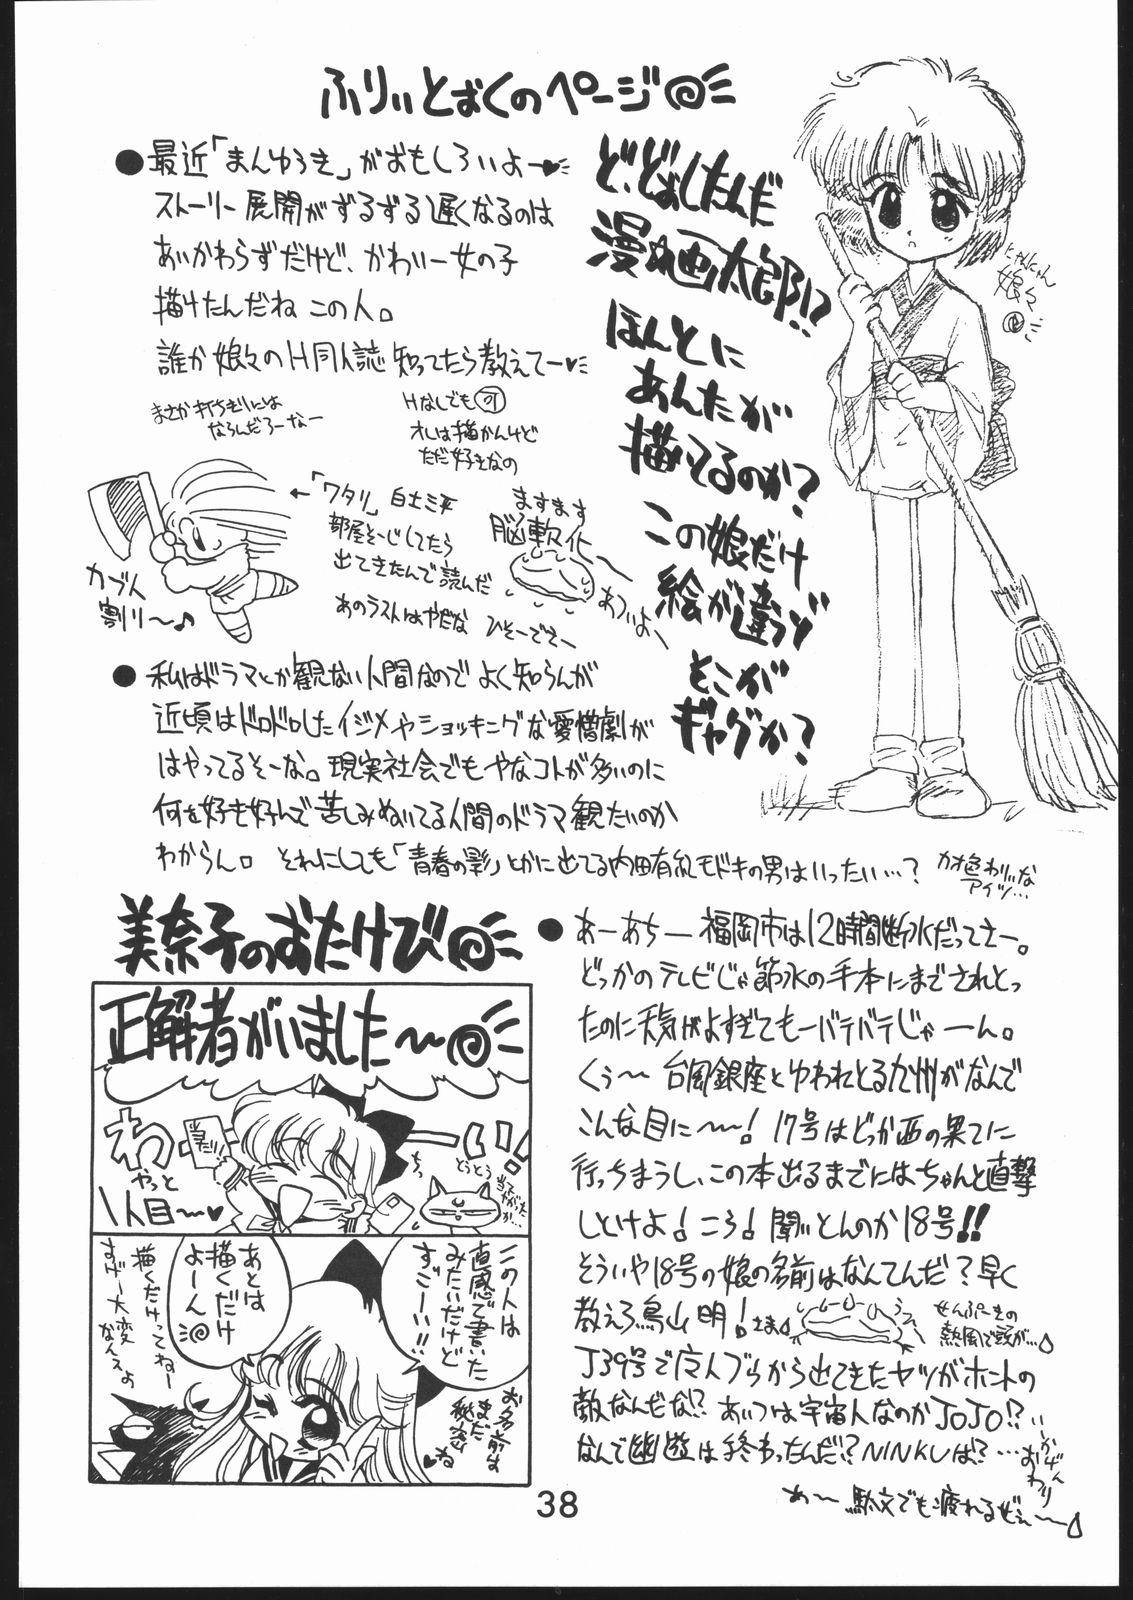 ふりぃとぉくのページ
●最近「まんゆうき」がおもしろいよー♥
ストーリー展開がずるずる遅くなるのは
あいかわらずだけど、かわいー女の子
描けたんだね この人。
誰か娘々のH同人誌知ってたら教えてー♥
まさか打ちぎりには
ならんだろーなー
Hなしでも可
オレは描かんけど
ただ好きなの
ど、どぉしたんだ
漫☆画太郎!?
ほんとに
あんたが
描いてるのか?
この娘だけ
絵が違うぞ
そこが
ギャグか?
にゃんにゃん
娘々
←「ワタリ」白土三平
部屋そーじしてたら
出てきたんで読んだ
あのラストはやだな
ひそーでさー
カブト
割り〜♪
ますます
脳軟化〜
あついよ〜
●私はドラマとか観ない人間なのでよく知らんが
近頃はドロドロしたイジメやショッキングな愛憎劇が
はやってるそーな。現実社会でもやなコトが多いのに
何を好き好んで苦しみぬいてる人間のドラマ観たいのか
わからん。それにしても「青春の影」とかに出てる内田有紀モドキの男はいったい…?
カオ色わりぃな
アイツ…
美奈子のおたけび
正解者がいました〜
わーい!
やっと
1人目〜♥
とうとう
当てやがったか…
この人は
直感で書いた
みたいだけど
すごーい!!
お名前は
まだ
秘密
ね♥
あとは
描くだけ
よーん
描くだけってねー
すげー大変
なんスよ
●あーあちー 福岡市は12時間断水だってさー。
どっかのテレビじゃ節水の手本にまでされとっ
たのに天気がよすぎてもーバテバテじゃーん。
くぅ〜 台風銀座とゆわれとる九州がなんで
こんな目に〜〜! 17号はどっか西の果てに
行っちまうし、この本出るまでにはちゃんと直撃
しといけよ!ころ! 聞いとんのか18号!!
そういや18号の娘の名前はなんてんだ?早く
教えろ鳥山明!さま
せんぷーきの
熱風で頭が…
J39号で広人ブらから出てきたヤツがホントの
敵なんだな!? あいつは宇宙人なのかJOJO!?
なんで幽遊は終わったんだ!? NINKUは?…
いかげん
おわり
あ〜 駄文でも疲れるぜぇ〜
38